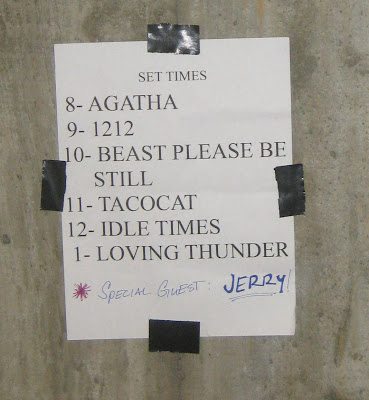 SET TIMES
8- AGATHA
9- 1212
10- BEAST PLEASE BE
STILL
11- TACOCAT
12- IDLE TIMES
1- LOVING THUNDER
* SPECIAL GUEST: JERRY!